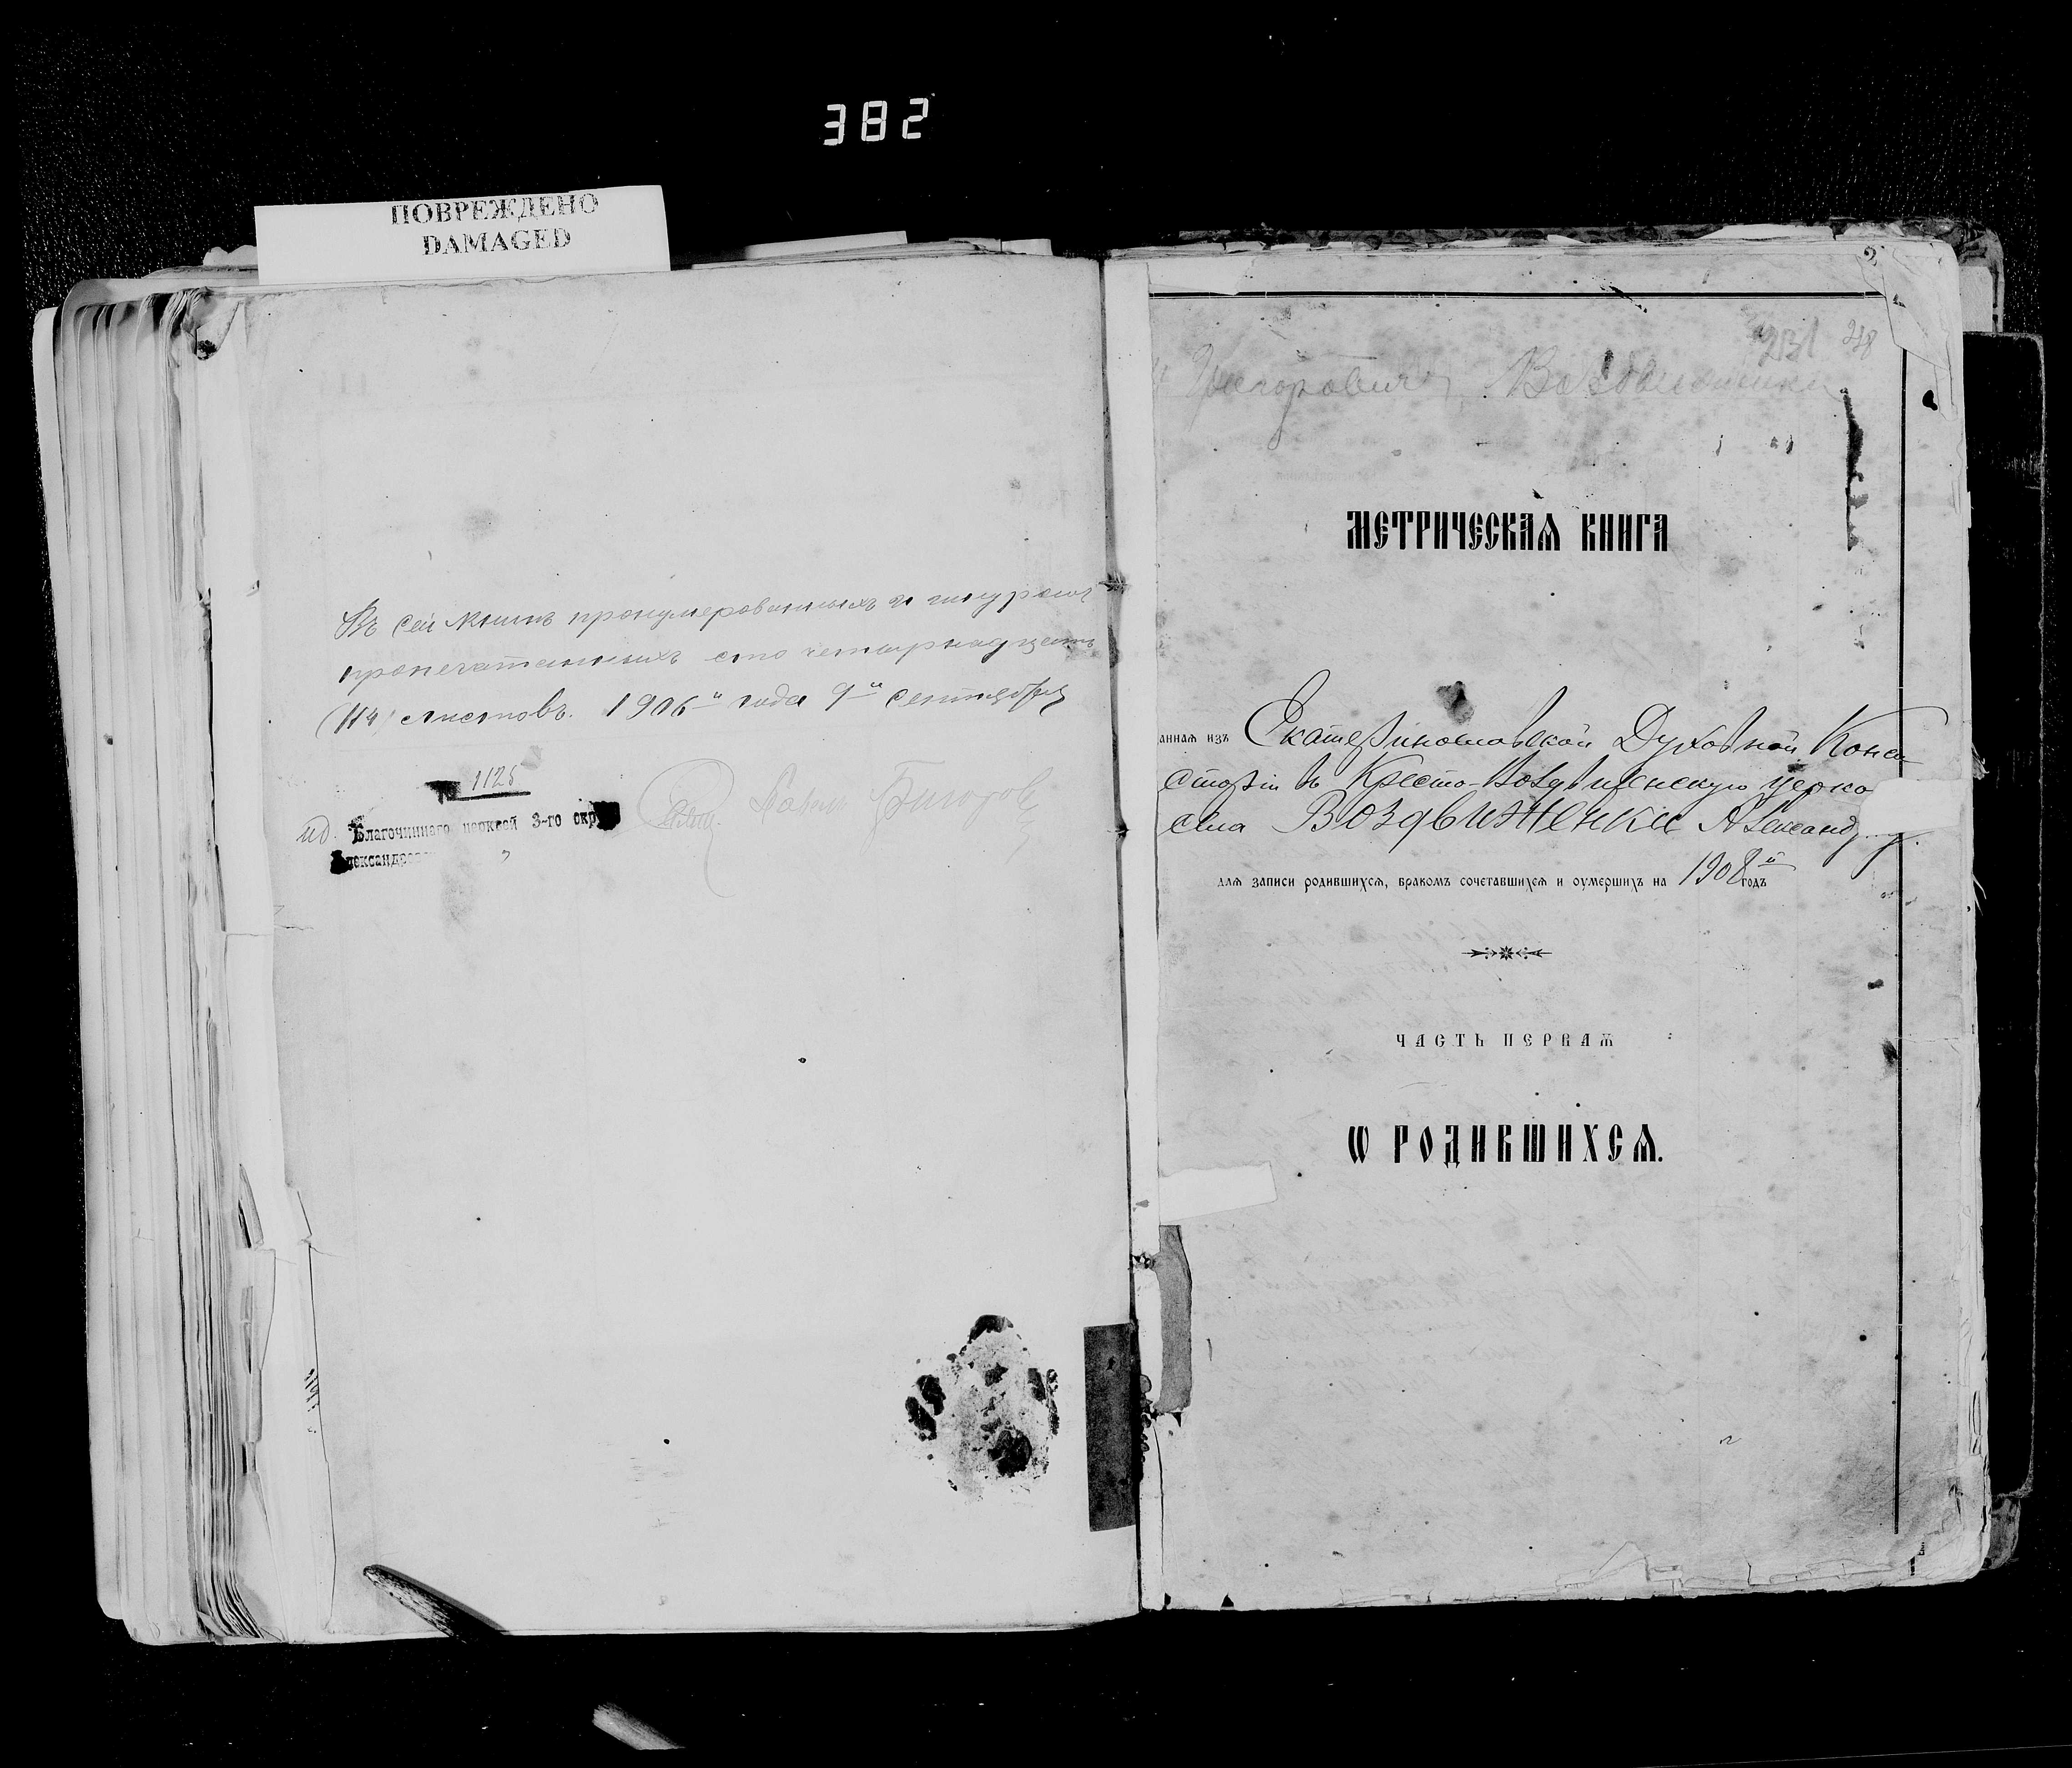 382
ПОВРЕЖДЕНО
DAMAGED
Въ сей книгѣ пронумерованныхъ и шнуромъ
пропечатанныхъ сто четырнадцать
(114) листовъ. 1906 года 9 сентября
1125
ид. Благочиннаго церквей 3-го окр
Александров
2
231 248
Григоровича Воздвиженки
МЕТРИЧЕСКАѦ КНИГА
аннаѧ изъ Екатеринославской Духовной Конси
сторіи въ Кресто-Воздвиженскую церко
села Воздвиженки Александ
длѧ записи родившихсѧ, бракомъ сочетавшихсѧ и оумершихъ на 1908й годъ
ЧАСТЬ ПЕРВАѦ
Ѡ РОДИВШИХСѦ.